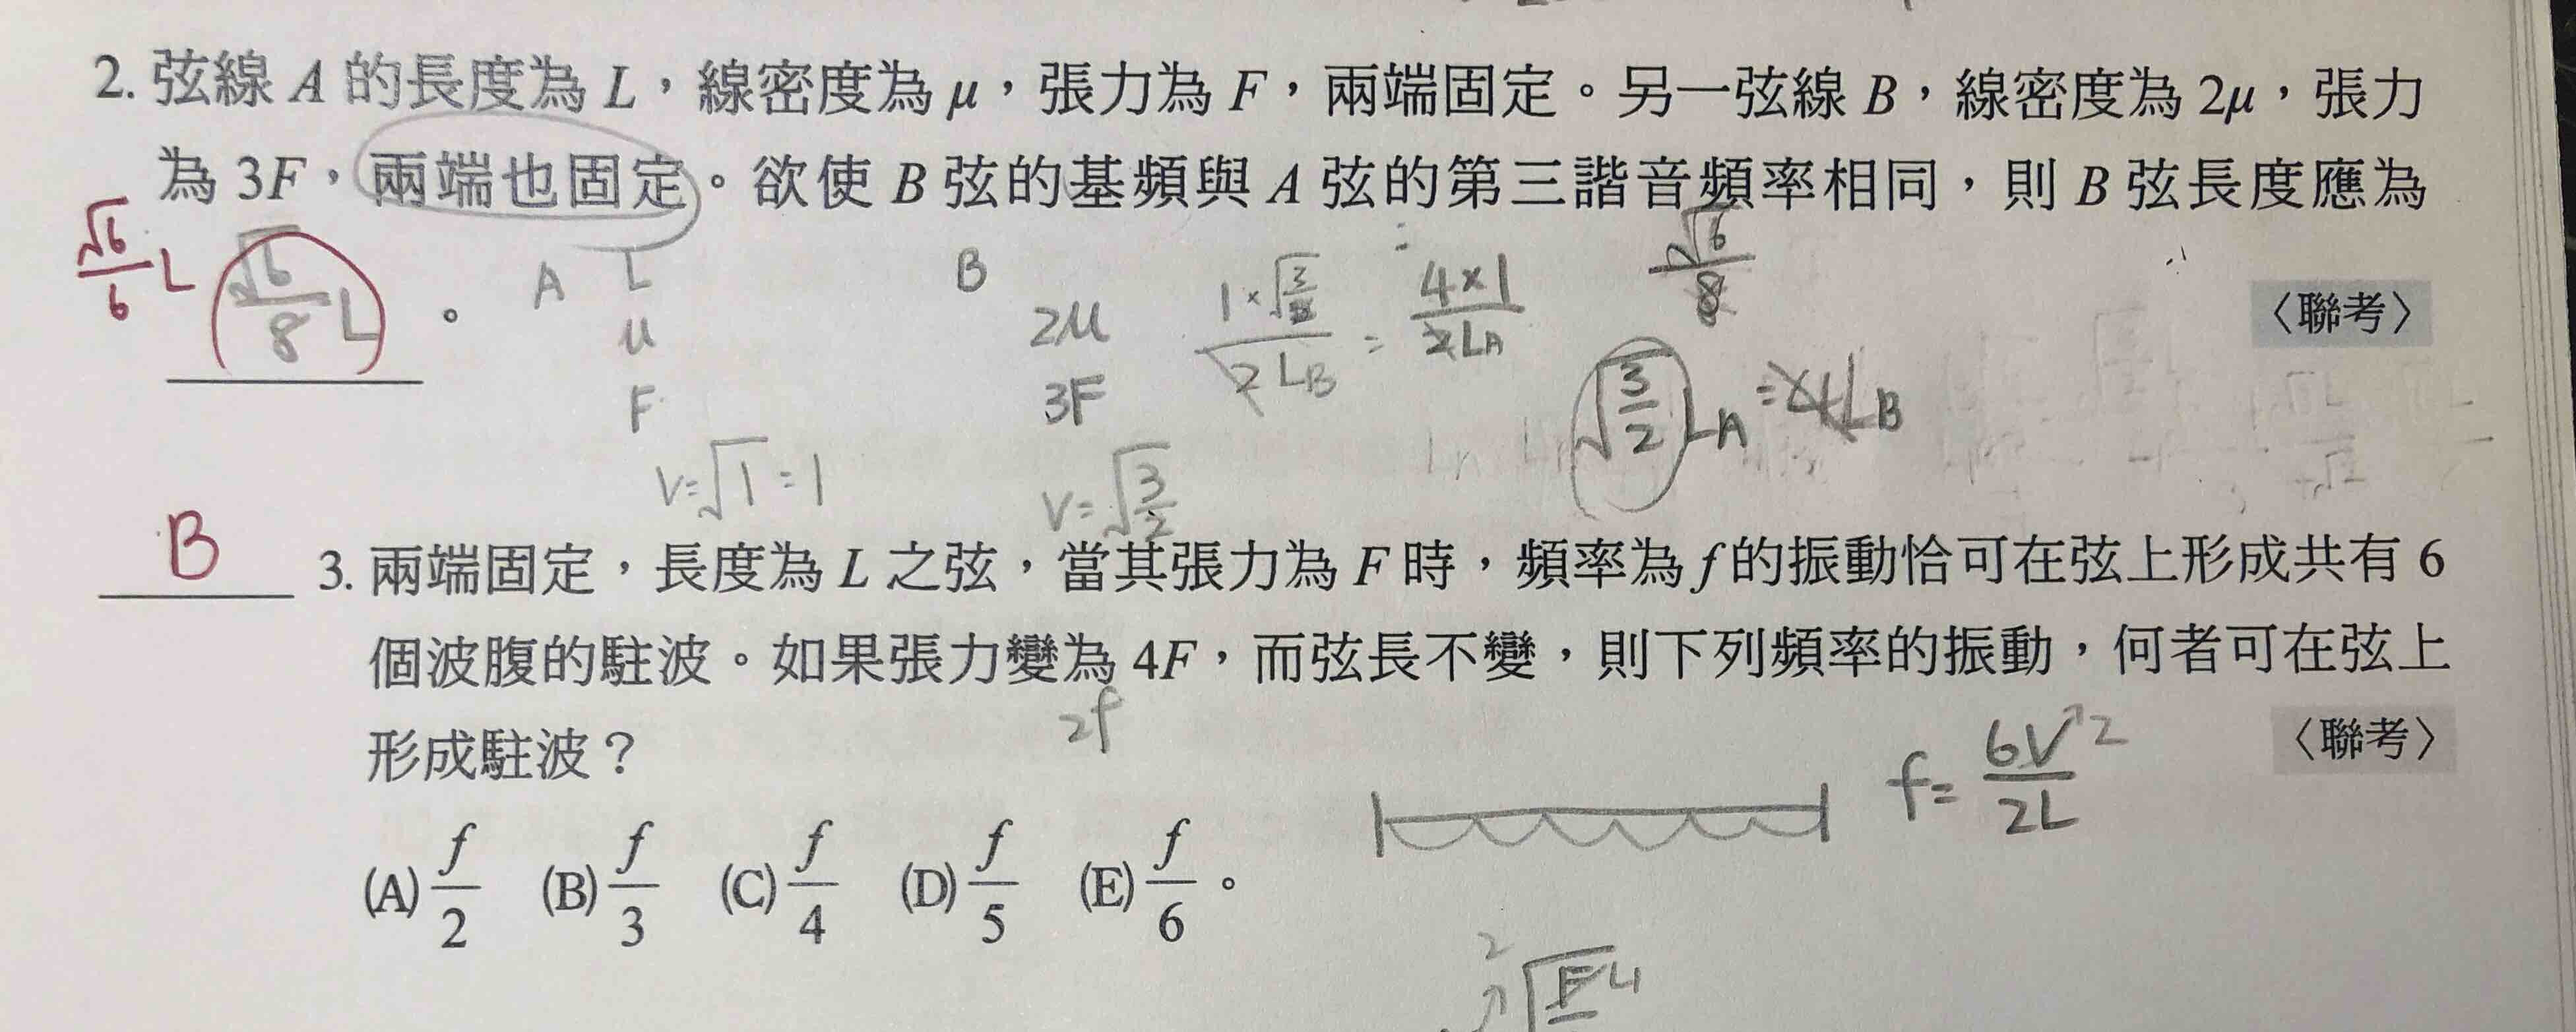 2. 弦線 A 的長度為 L，線密度為 μ，張力為 F，兩端固定。另一弦線 B，線密度為 2μ，張力
為 3F，兩端也固定。欲使 B 弦的基頻與 A 弦的第三諧音頻率相同，則 B 弦長度應為
√6/6 L √6/8 L 。 〈聯考〉
A L B √6/8
μ 2μ (1×√(3/2))/(2L_B) = (4×1)/(2L_A)
F 3F √(3/2) L_A = 4L_B
V=√1=1 V=√(3/2)
B 3. 兩端固定，長度為 L 之弦，當其張力為 F 時，頻率為 f 的振動恰可在弦上形成共有 6
個波腹的駐波。如果張力變為 4F，而弦長不變，則下列頻率的振動，何者可在弦上
形成駐波？ 2f 〈聯考〉
f= 6V/2L 2
(A) f/2 (B) f/3 (C) f/4 (D) f/5 (E) f/6 。
2 √F 4